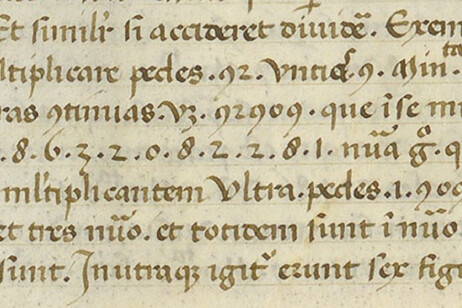 Et simil'r si accideret diuidē. Exem
ltiplicare pedes. 92. vntie 9. Min.
ras 9tinuas. vz. 92909. que ī se m
.8.6.3.2.0.8.2.2.8.1. nūa g̊. q
ml'tiplicantem Vltra. pedes. 1. 909
et tres nūo. et totidem sunt ī nūo
sunt. In utraqz igit' erunt sex figu